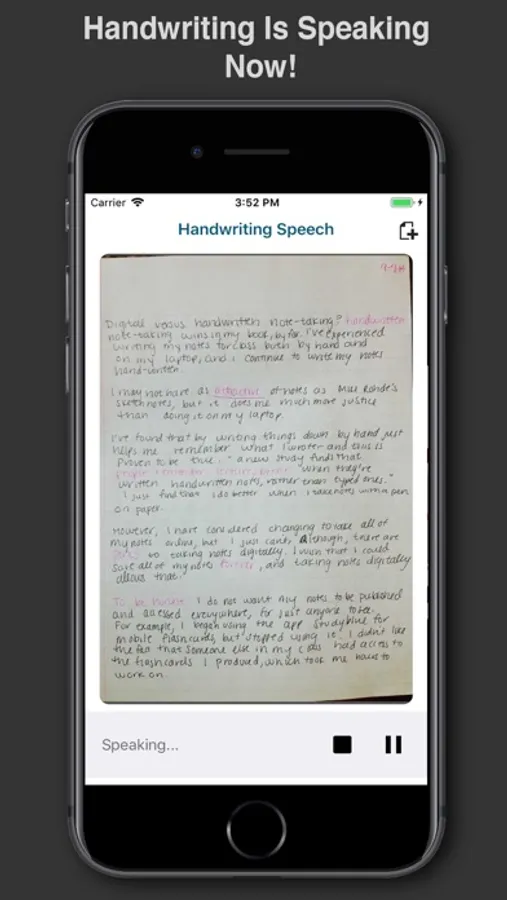 Handwriting Is Speaking
Now!
Carrier
3:52 PM
Handwriting Speech
Digital versus handwritten note-taking? Handwritten
note-taking wins in my book, by far. I've experienced
writing my notes for class both by hand and
on my laptop, and I continue to write my notes
hand-written.
I may not have as attractive of notes as Miss Rohde's
sketchnotes, but it does me much more justice
than doing it on my laptop.
I've found that by writing things down by hand just
helps me remember what I wrote and this is
proven to be true. "a new study finds that
people remember lectures better when they're
written handwritten notes, rather than typed ones."
I just find that I do better when I take notes with a pen
on paper.
However, I have considered changing to take all of
my notes online, but I just can't, although, there are
to taking notes digitally. I wish that I could
save all of my notes forever, and taking notes digitally
allows that.
To be honest I do not want my notes to be published
and accessed everywhere, for just anyone to see.
For example, I began using the app studyblue for
mobile flashcards, but stopped using it. I didn't like
the fact that someone else in my class had access to
the flashcards I produced, which took me hours to
work on.
Speaking...